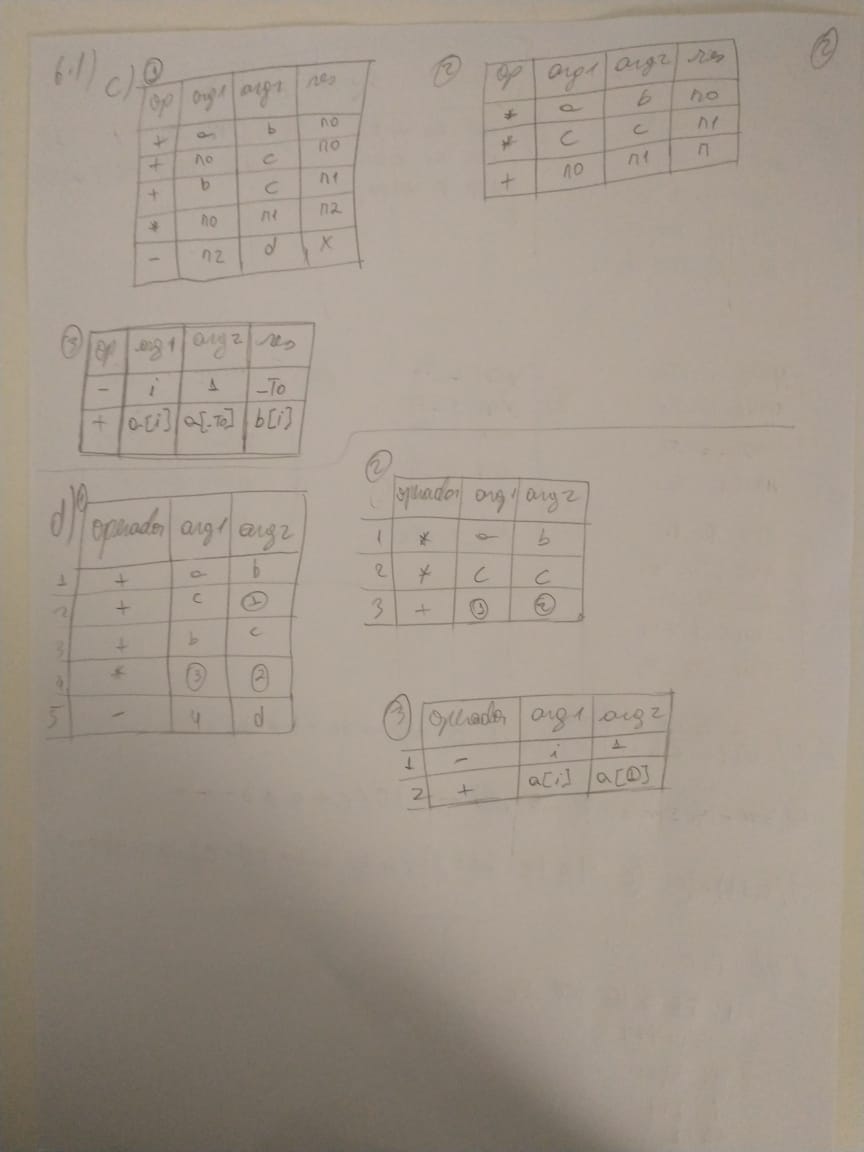 6.1) c) ①
op arg1 arg2 res
+ a b r0
+ r0 c r0
+ b c r1
* r0 r1 r2
- r2 d x
②
op arg1 arg2 res
* a b r0
* c c r1
+ r0 r1 r
②
③
op arg1 arg2 res
- i 1 -T0
+ a[i] a[-T0] b[i]
d) ①
operador arg1 arg2
1 + a b
2 + c ①
3 + b c
4 * ③ ②
5 - 4 d
②
operador arg1 arg2
1 * a b
2 * c c
3 + ① ②
③
operador arg1 arg2
1 - i 1
2 + a[i] a[①]